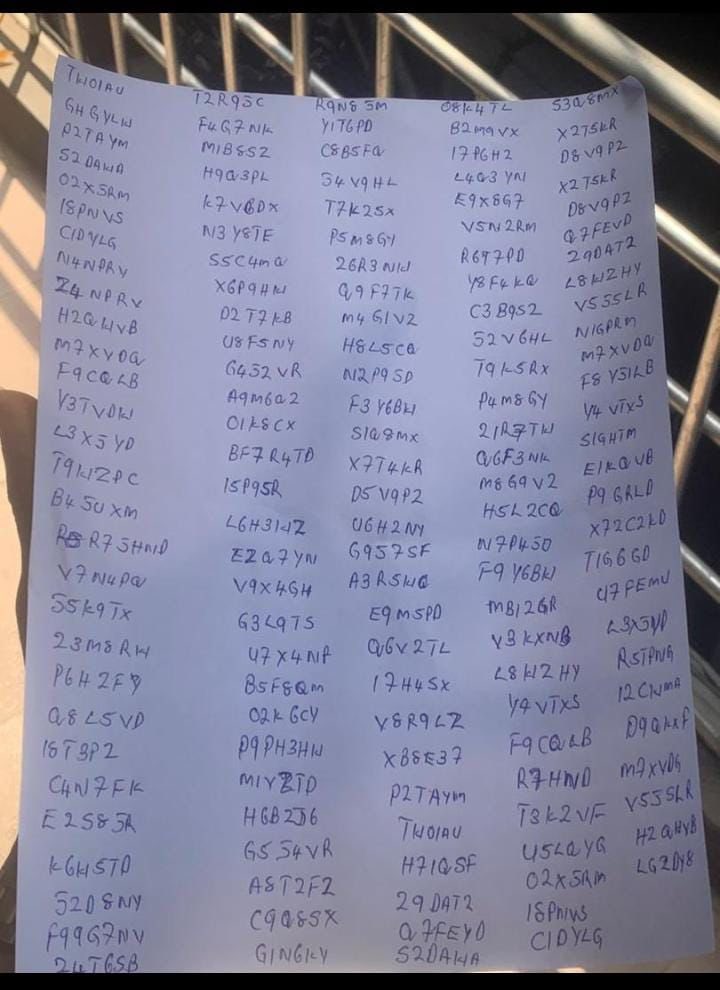 TWO1AU
GHGYLW
P2TAYM
S2DAWA
O2X5RM
18PNVS
C1DYLG
N4NPRV
Z4NPRV
H2QWVB
M7XVDQ
F9CQLB
Y3TVDW
L3X5YD
T9WZPC
B45UXM
V7N4PQ
S5K9TX
23M8RW
P6H2FY
Q8L5VD
18T3P2
C4N7FK
E2S85R
K6W5TD
52D8NY
F99G7NV
24T6SB
T2R95C
F4G7NK
M1B8S2
H9Q3PL
K7V6DX
N3Y8TE
S5C4MQ
X6P9HW
D2T7KB
U8F5NY
G4S2VR
A9M6Q2
O1K8CX
BF7R4TD
15P95R
L6H31WZ
E2Q7YN
V9X4GH
G3L9TS
U7X4NP
B5F8QM
O2K6CY
P9PH3HW
M1VZTD
H6B2J6
G5S4VR
A8T2F2
C9Q85X
G1N6KY
R9N85M
Y1T6PD
C8B5FQ
S4V9HL
T7K25X
P5M8GY
26R3NW
Q9F7TK
M4G1V2
H8L5CQ
N2P9SD
F3Y6BW
S1Q8MX
X7T4KR
D5V9P2
U6H2NY
G9S7SF
A3R5WQ
E9M5PD
Q6V2TL
17H4SX
V8R9LZ
XB8E37
P2TAYM
TWO1AU
H71QSF
29DAT2
Q7FEYD
S2DAWA
O8K4TL
B2M9VX
17P6H2
L4Q3YN
E9X8G7
V5N2RM
R6T7PD
Y8F4KQ
C3B9S2
S2V6HL
T9K5RX
P4M8GY
21R7TW
Q6F3NK
M8G9V2
H5L2CQ
N7P4SD
F9Y6BW
MB12GR
V3KXNB
L8WZHY
Y4VTXS
F9CQLB
R7HWD
T3K2VF
U5LQYG
O2X5RM
18PNVS
C1DYLG
S3Q8MX
X2T5KR
D8V9P2
X2T5KR
D8V9P2
Q7FEVD
29DAT2
L8WZHY
V5S5LR
N1GPRM
M7XVDQ
F8Y51LB
Y4VTXS
S1GHTM
E1KQVB
P9GRLD
X72C2KD
T1G6GD
U7FEMU
L3X5YD
R5TPNG
12CWMA
D9QKXF
M7XVDG
V5S5LR
H2QWVB
LG2DY8